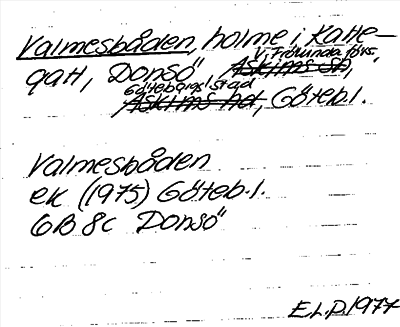 Valmesbåden, holme i Katte-
V. Frölunda förs.
gatt, Donsö Askims sn,
Göteborgs stad
Askims hd, Göteb. l.
Valmesbåden
ek (1975) Göteb. l.
6B 8c Donsö
E.L.P. 1977